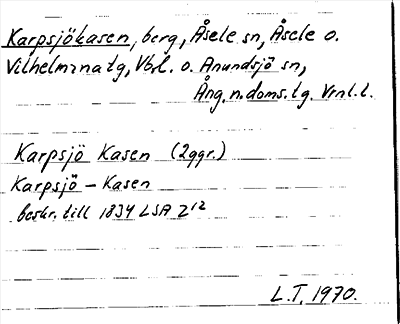 Karpsjökasen, berg, Åsele sn, Åsele o.
Vilhelmina tg, Vbl. o. Anundsjö sn,
Ång. n. doms. tg. Vrnl. l.
Karpsjö Kasen (2ggr.)
Karpsjö - Kasen
beskr. till 1834 LSA Z¹²
L.T. 1970.